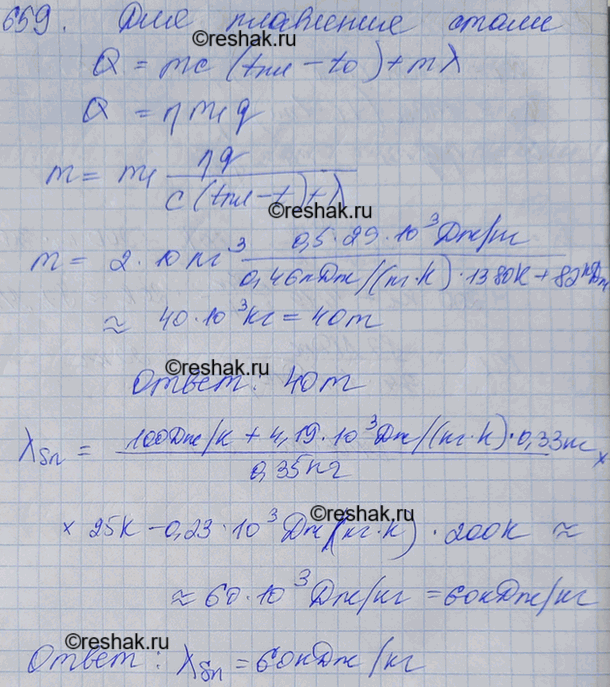 659. Для плавление стали
©reshak.ru
Q = mc (tпл - t0) + mλ
Q = ηm1q
m = m1 ηq / c (tпл - t) + λ
©reshak.ru
m = 2·10 кг³ 0,5·29·10³ Дж/кг / 0,46кДж/(кг·К)·1380К + 82кДж
≈ 40·10³кг = 40т
©reshak.ru
Ответ: 40т
λSn = 100Дж/К + 4,19·10³Дж/(кг·К)·0,33кг / 0,35кг ×
× 25К - 0,23·10³ Дж/(кг·К) · 200К ≈
©reshak.ru
≈ 60·10³ Дж/кг = 60кДж/кг
©reshak.ru
Ответ: λSn = 60кДж/кг